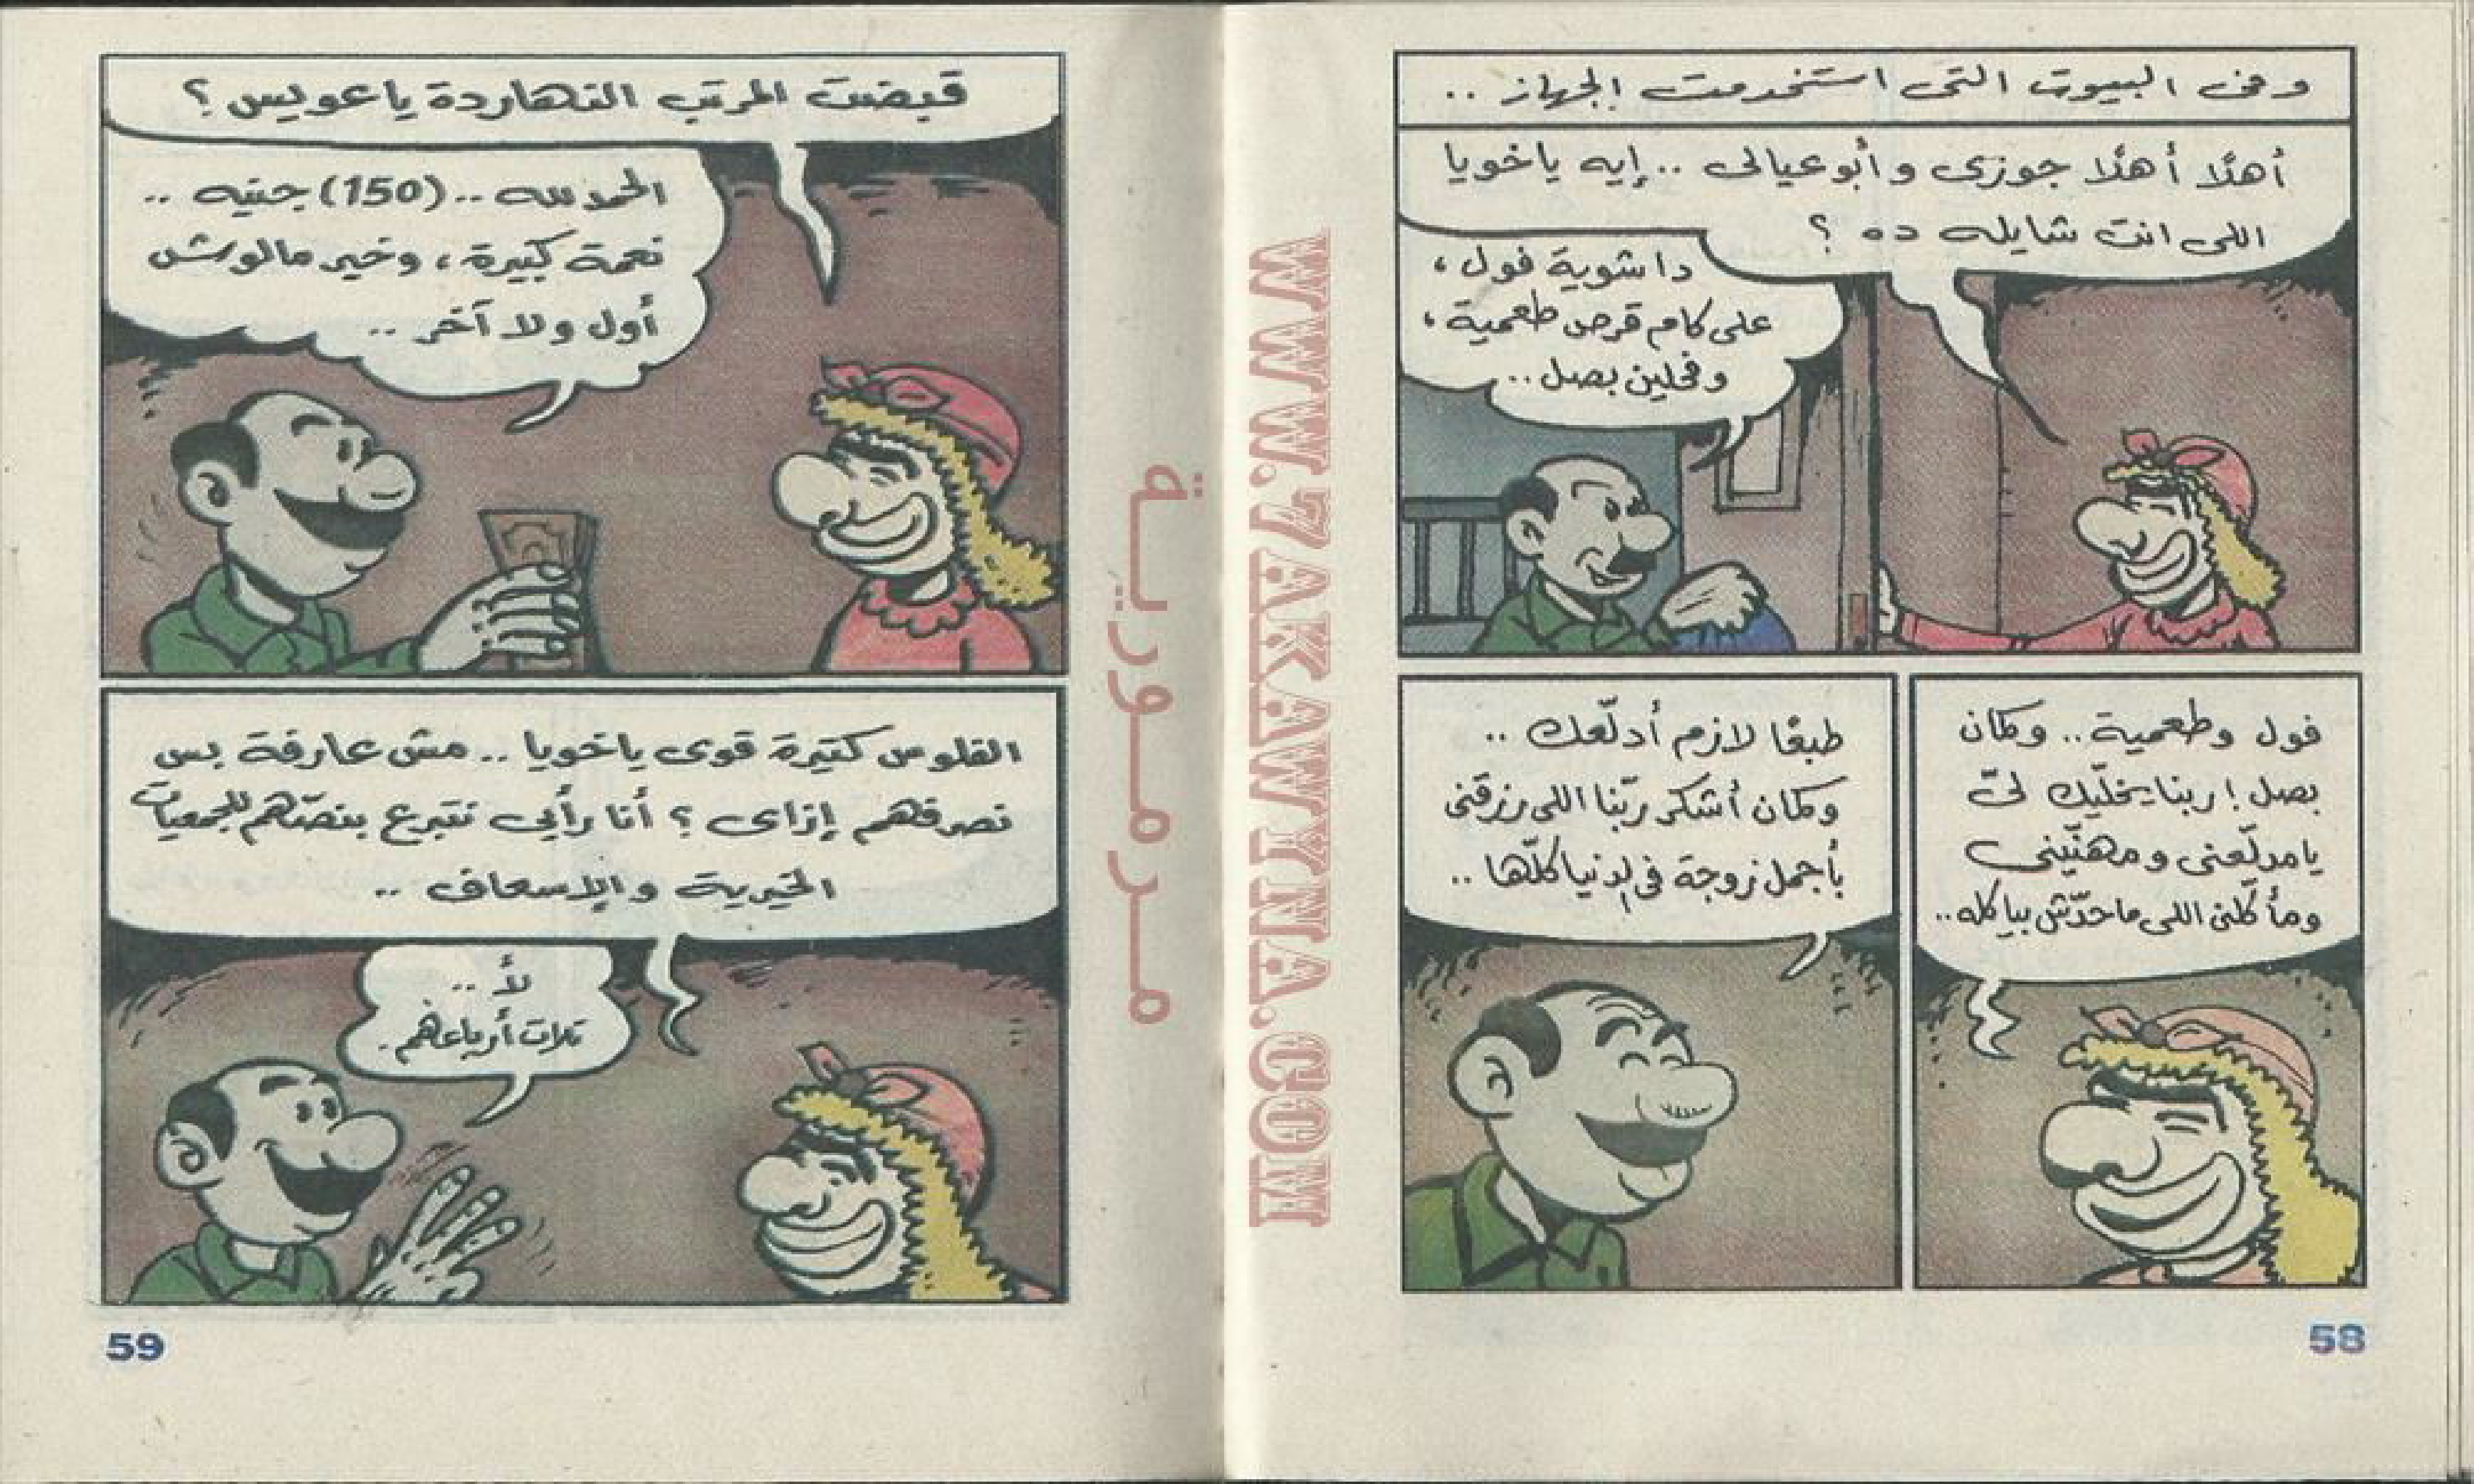 وفى البيوت التى استخدمت الجهاز ..
أهلًا أهلًا جوزى وأبو عيالى .. إيه ياخويا
اللى انت شايله ده ؟
دا شوية فول ،
على كام قرص طعمية ،
وفحلين بصل ..
فول وطعمية .. وكمان
بصل ! ربنا يخلّيك لىّ
يا مدلّعنى ومهنّينى
ومأكلنى اللى ماحدّش بياكله ..
طبعًا لازم أدلّعك ..
وكمان أشكر ربّنا اللى رزقنى
بأجمل زوجة فى الدنيا كلّها ..
58
WWW.7AKAWINA.COM
مرمورية
قبضت المرتب النهاردة ياعويس ؟
الحمد لله .. (150) جنيه ..
نعمة كبيرة ، وخير مالوش
أول ولا آخر ..
الفلوس كتيرة قوى ياخويا .. مش عارفة بس
نصرفهم إزاى ؟ أنا رأيى نتبرع بنصّهم للجمعيات
الخيرية والإسعاف ..
لأ ..
تلات أرباعهم .
59